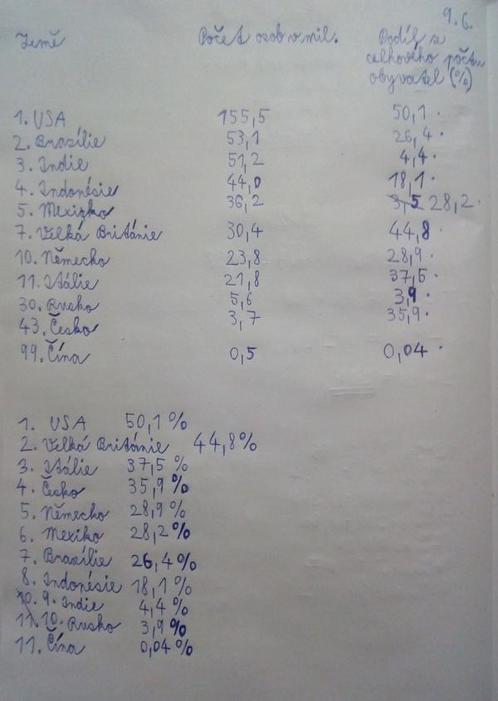 9.6.
Země Počet osob v mil. Podíl z
celkového počtu
obyvatel (%)
1. USA 155,5 50,1 ·
2. Brazílie 53,1 26,4 ·
3. Indie 51,2 4,4 ·
4. Indonésie 44,0 18,1 ·
5. Mexiko 36,2 3,5 28,2 ·
7. Velká Británie 30,4 44,8 ·
10. Německo 23,8 28,9 ·
11. Itálie 21,8 37,5 ·
30. Rusko 5,6 3,9 ·
43. Česko 3,7 35,9 ·
99. Čína 0,5 0,04 ·
1. USA 50,1 %
2. Velká Británie 44,8%
3. Itálie 37,5 %
4. Česko 35,9 %
5. Německo 28,9%
6. Mexiko 28,2%
7. Brazílie 26,4%
8. Indonésie 18,1 %
10. 9. Indie 4,4 %
11. 10. Rusko 3,9 %
11. Čína 0,04 %